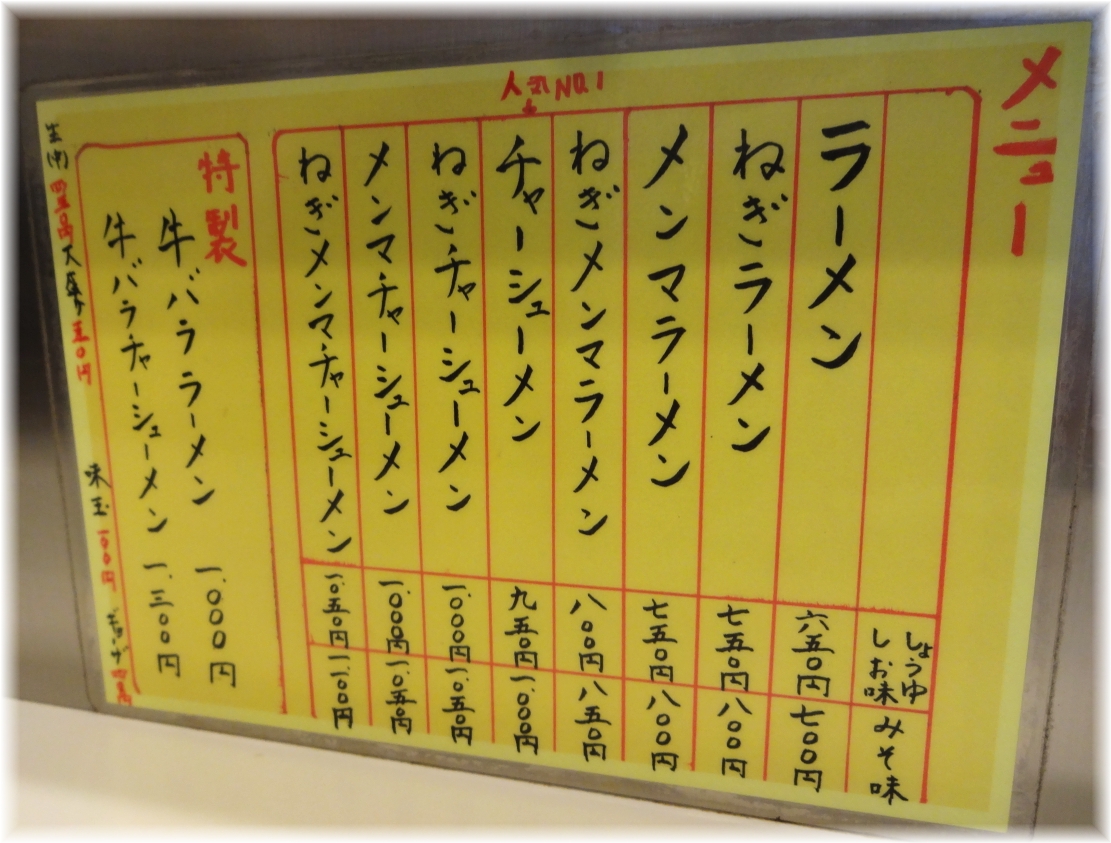 メニュー
しょうゆ
しお味
みそ味
ラーメン 六五〇円 七〇〇円
ねぎラーメン 七五〇円 八〇〇円
メンマラーメン 七五〇円 八〇〇円
ねぎメンマラーメン 八〇〇円 八五〇円
人気NO.1
チャーシューメン 九五〇円 一、〇〇〇円
ねぎチャーシューメン 一、〇〇〇円 一、〇五〇円
メンマチャーシューメン 一、〇〇〇円 一、〇五〇円
ねぎメンマチャーシューメン 一、〇五〇円 一、一〇〇円
特製
牛バララーメン 一、〇〇〇円
牛バラチャーシューメン 一、三〇〇円
生(中) 大盛り 五〇円 味玉 一〇〇円 ギョーザ